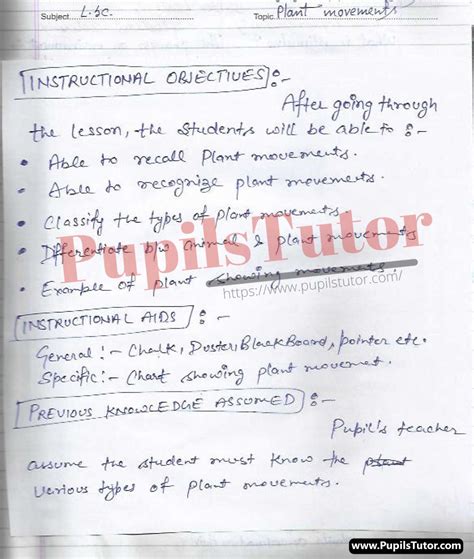 Subject L.Sc. Topic Plant movements
INSTRUCTIONAL OBJECTIVES :-
After going through
the lesson, the students will be able to :-
• Able to recall Plant movements.
• Able to recognize plant movements.
• Classify the types of plant movements
• Differentiate b/w animal & plant movements
• Example of plant showing movements.
PupilsTutor
https://www.pupilstutor.com/
INSTRUCTIONAL AIDS :-
General :- Chalk, Duster, BlackBoard, pointer etc.
Specific :- Chart showing plant movement.
PREVIOUS KNOWLEDGE ASSUMED :-
Pupil's teacher
assume the student must know the plant
various types of plant movements.
www.PupilsTutor.com